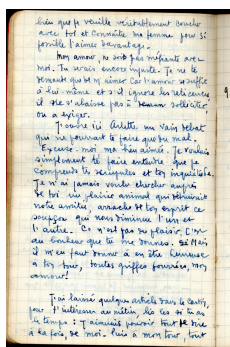 bien que je veuille véritablement coucher
avec toi et connaître ma femme pour si
possible l'aimer davantage.
Mon amour, ne sois pas méfiante avec
moi. Tu serais encore injuste. Je ne te
demande que de m'aimer car l'amour se suffit
à lui même et s'il ignore les
il ne s'abaisse pas à solliciter
ou à exiger.
J'ouvre ici Arlette un vain débat
qui ne pourrait te faire que du mal.
Excuse moi ma bien aimée. Je voulais
simplement te faire entendre que je
comprends tes scrupules et ton inquiétude.
Je n'ai jamais voulu chercher auprès
de toi un plaisir animal qui détruirait
notre amitié, arrache de ton esprit ce
soupçon qui nous diminue l'un et
l'autre. Ce n'est pas du plaisir, c'est
du bonheur que tu me donnes. Si Mais
il m'en faut donner à en être heureuse
à ton tour, toutes griffes, mon
amour!
J'ai laissé quelques articles dans le carton,
pour t'intéresser au métin, lis les si tu as
le temps : J'aimerais pouvoir tout te dire
à la fois, de moi. Suis à mon tour, tout